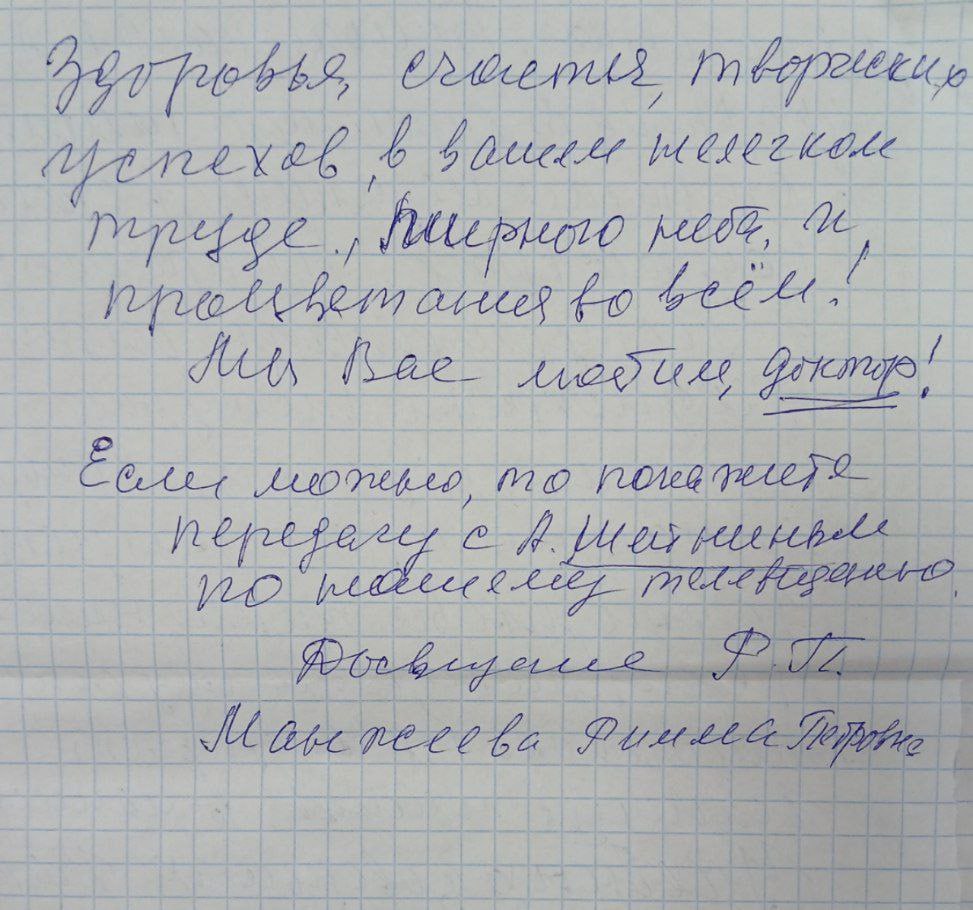 Здоровья, счастья, творческих
успехов, в вашем нелегком
труде, мирного неба, и
процветания во всём!
Мы Вас любим, доктор!
Если можно, то покажите
передачу с А.
по нашему телевиденью.
Досвидание Р.П.
Манжеева Римма Петровна